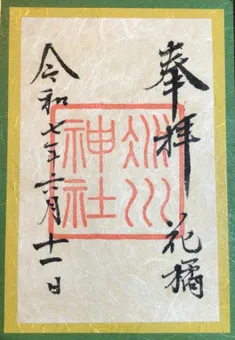 奉拝 花橘
氷川
神社
令和七年六月十一日